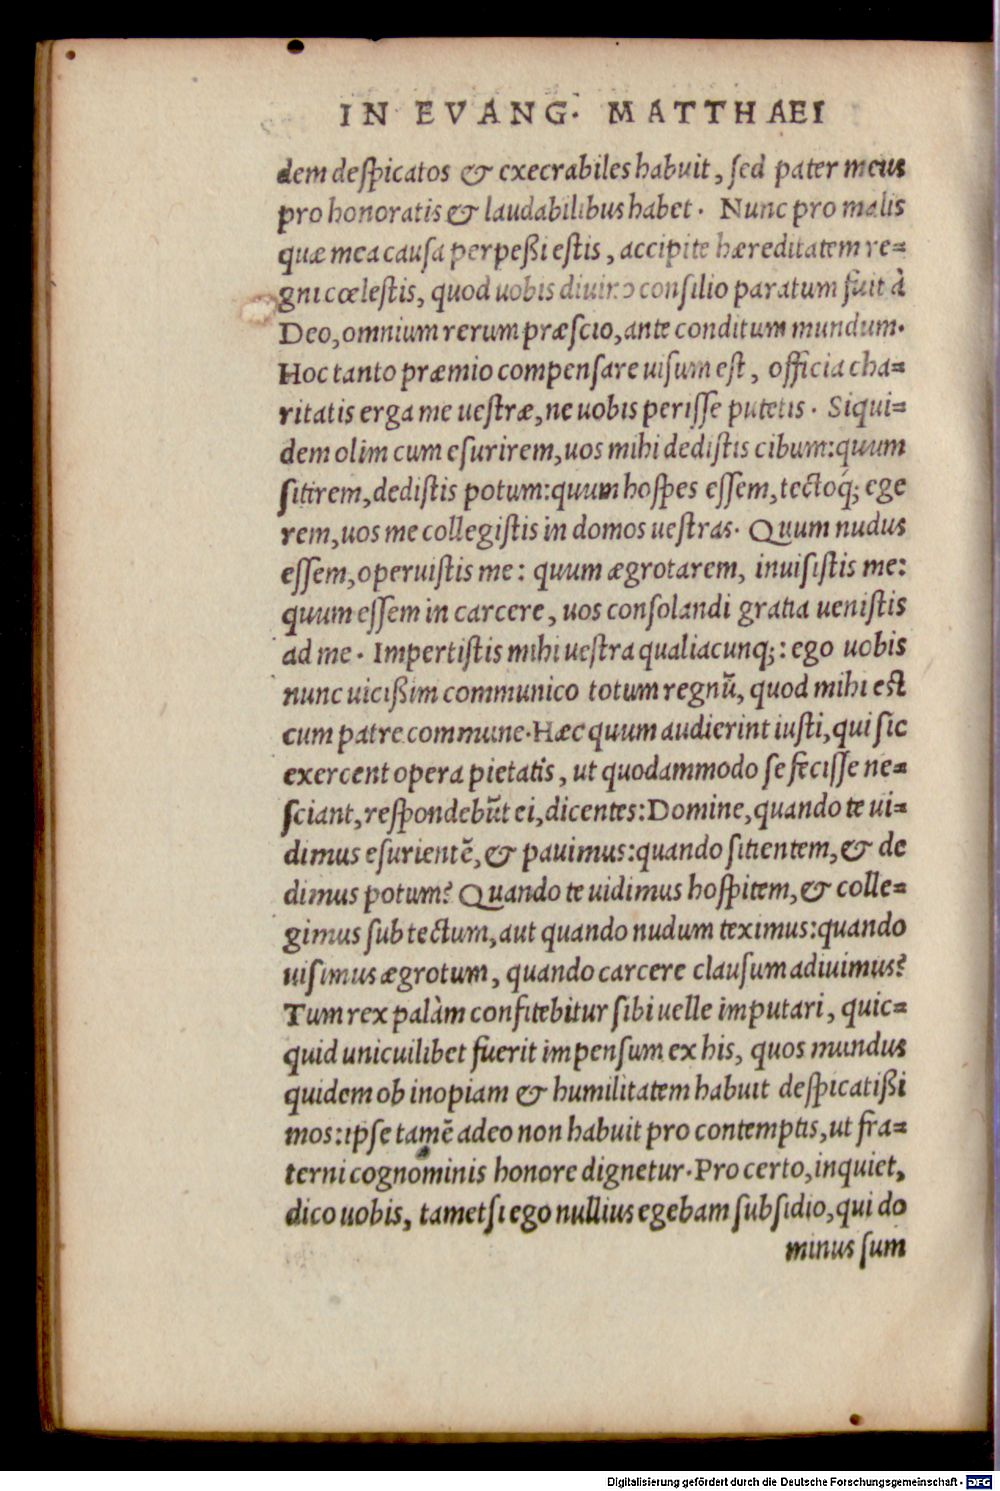 IN EVANG. MATTHAEI
dem deſpicatos & execrabiles habuit, ſed pater meus
pro honoratis & laudabilibus habet. Nunc pro malis
quæ mea cauſa perpeßi eſtis, accipite hæreditatem re=
gni cœleſtis, quod uobis diuino conſilio paratum fuit à
Deo, omnium rerum præſcio, ante conditum mundum.
Hoc tanto præmio compenſare uiſum est, officia cha=
ritatis erga me ueſtræ, ne uobis perijſſe putetis. Siqui=
dem olim cum eſurirem, uos mihi dediſtis cibum: quum
ſitirem, dediſtis potum: quum hoſpes eſſem, tectoq́; ege
rem, uos me collegiſtis in domos ueſtras. Quum nudus
eſſem, operuiſtis me: quum ægrotarem, inuiſiſtis me:
quum eſſem in carcere, uos conſolandi gratia ueniſtis
ad me. Impertiſtis mihi ueſtra qualiacunq;: ego uobis
nunc uicißim communico totum regnũ, quod mihi eſt
cum patre commune. Hæc quum audierint iuſti, qui ſic
exercent opera pietatis, ut quodammodo ſe feciſſe ne=
ſciant, reſpondebũt ei, dicentes: Domine, quando te ui=
dimus eſurientẽ, & pauimus: quando ſitientem, & de
dimus potum? Quando te uidimus hoſpitem, & colle=
gimus ſub tectum, aut quando nudum teximus: quando
uiſimus ægrotum, quando carcere clauſum adiuimus?
Tum rex palàm confitebitur ſibi uelle imputari, quic=
quid unicuilibet fuerit impenſum ex his, quos mundus
quidem ob inopiam & humilitatem habuit deſpicatißi
mos: ipſe tamẽ adeo non habuit pro contemptis, ut fra=
terni cognominis honore dignetur. Pro certo, inquiet,
dico uobis, tametſi ego nullius egebam ſubſidio, qui do
minus ſum
Digitalisierung gefördert durch die Deutsche Forschungsgemeinschaft - DFG